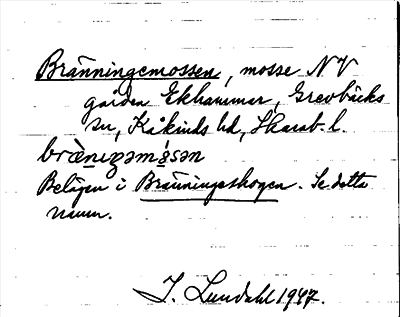 Bränningemossen, mosse NV
gården Ekhammar, Grevbäcks
sn, Kåkinds hd, Skarab. l.
bræ̀nıgəmɔ́sən
Belägen i Bränningeskogen. Se detta
namn.
I. Lundahl 1947.